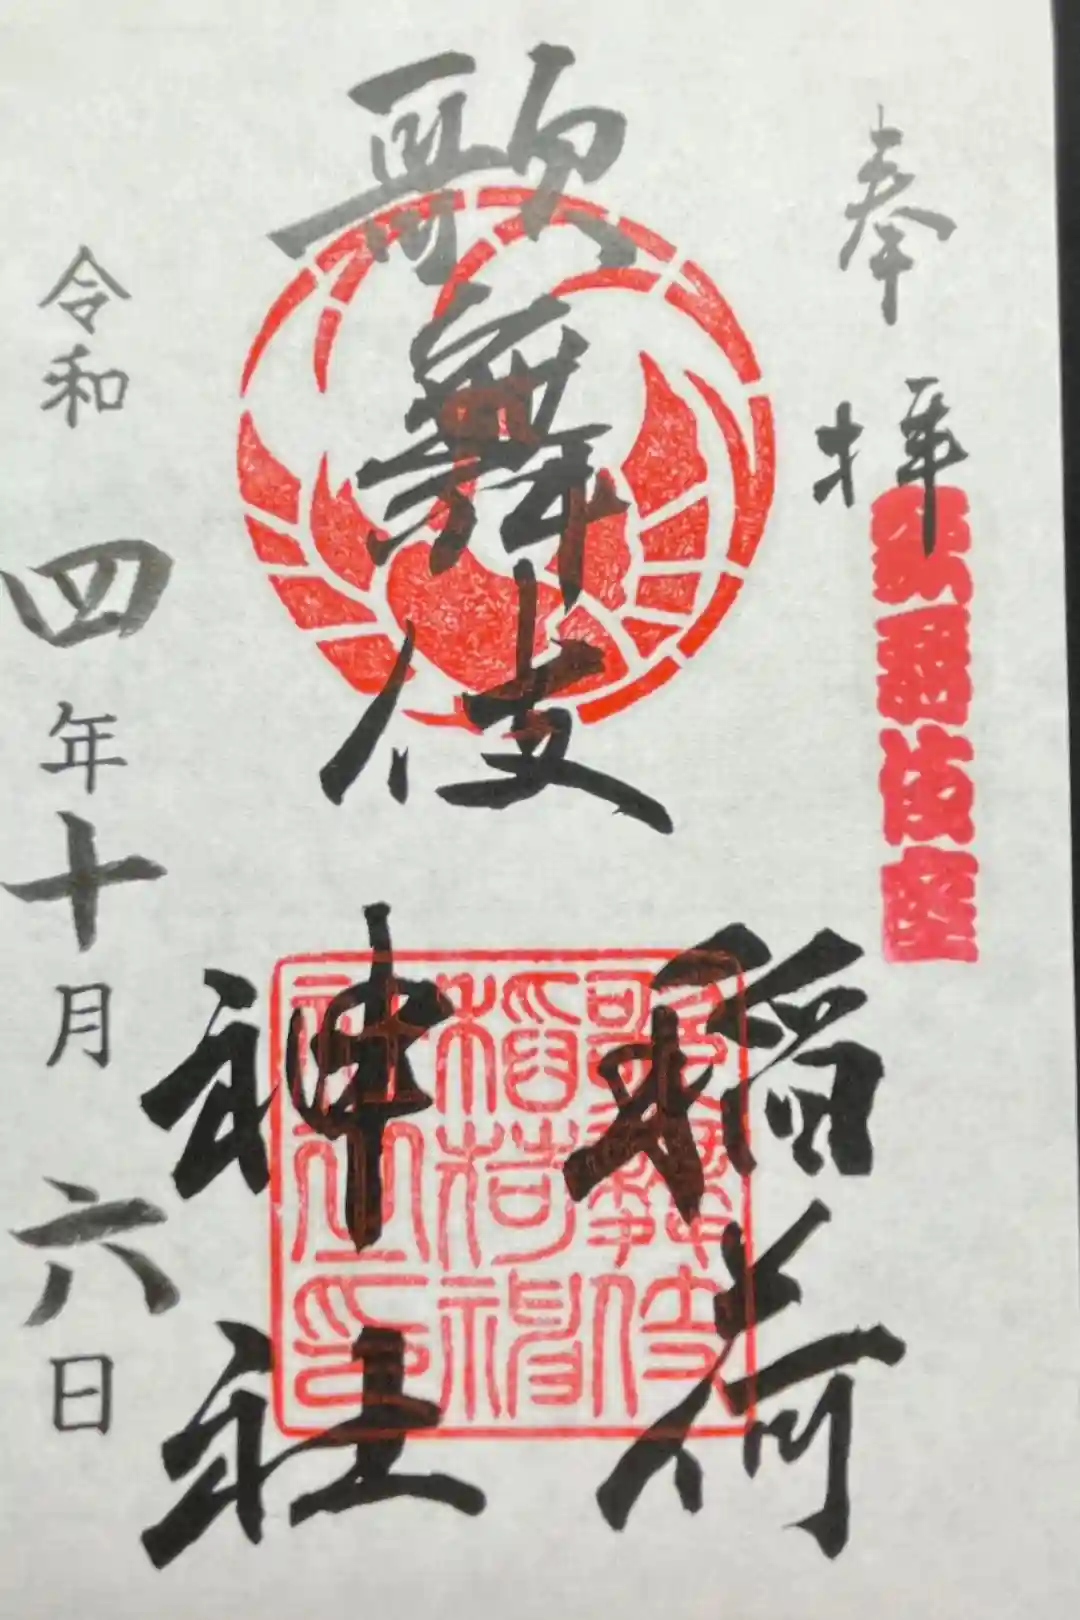 奉拝
歌舞伎座
歌舞伎
稲荷
神社
歌舞伎
稲荷神
社之印
令和四年十月六日